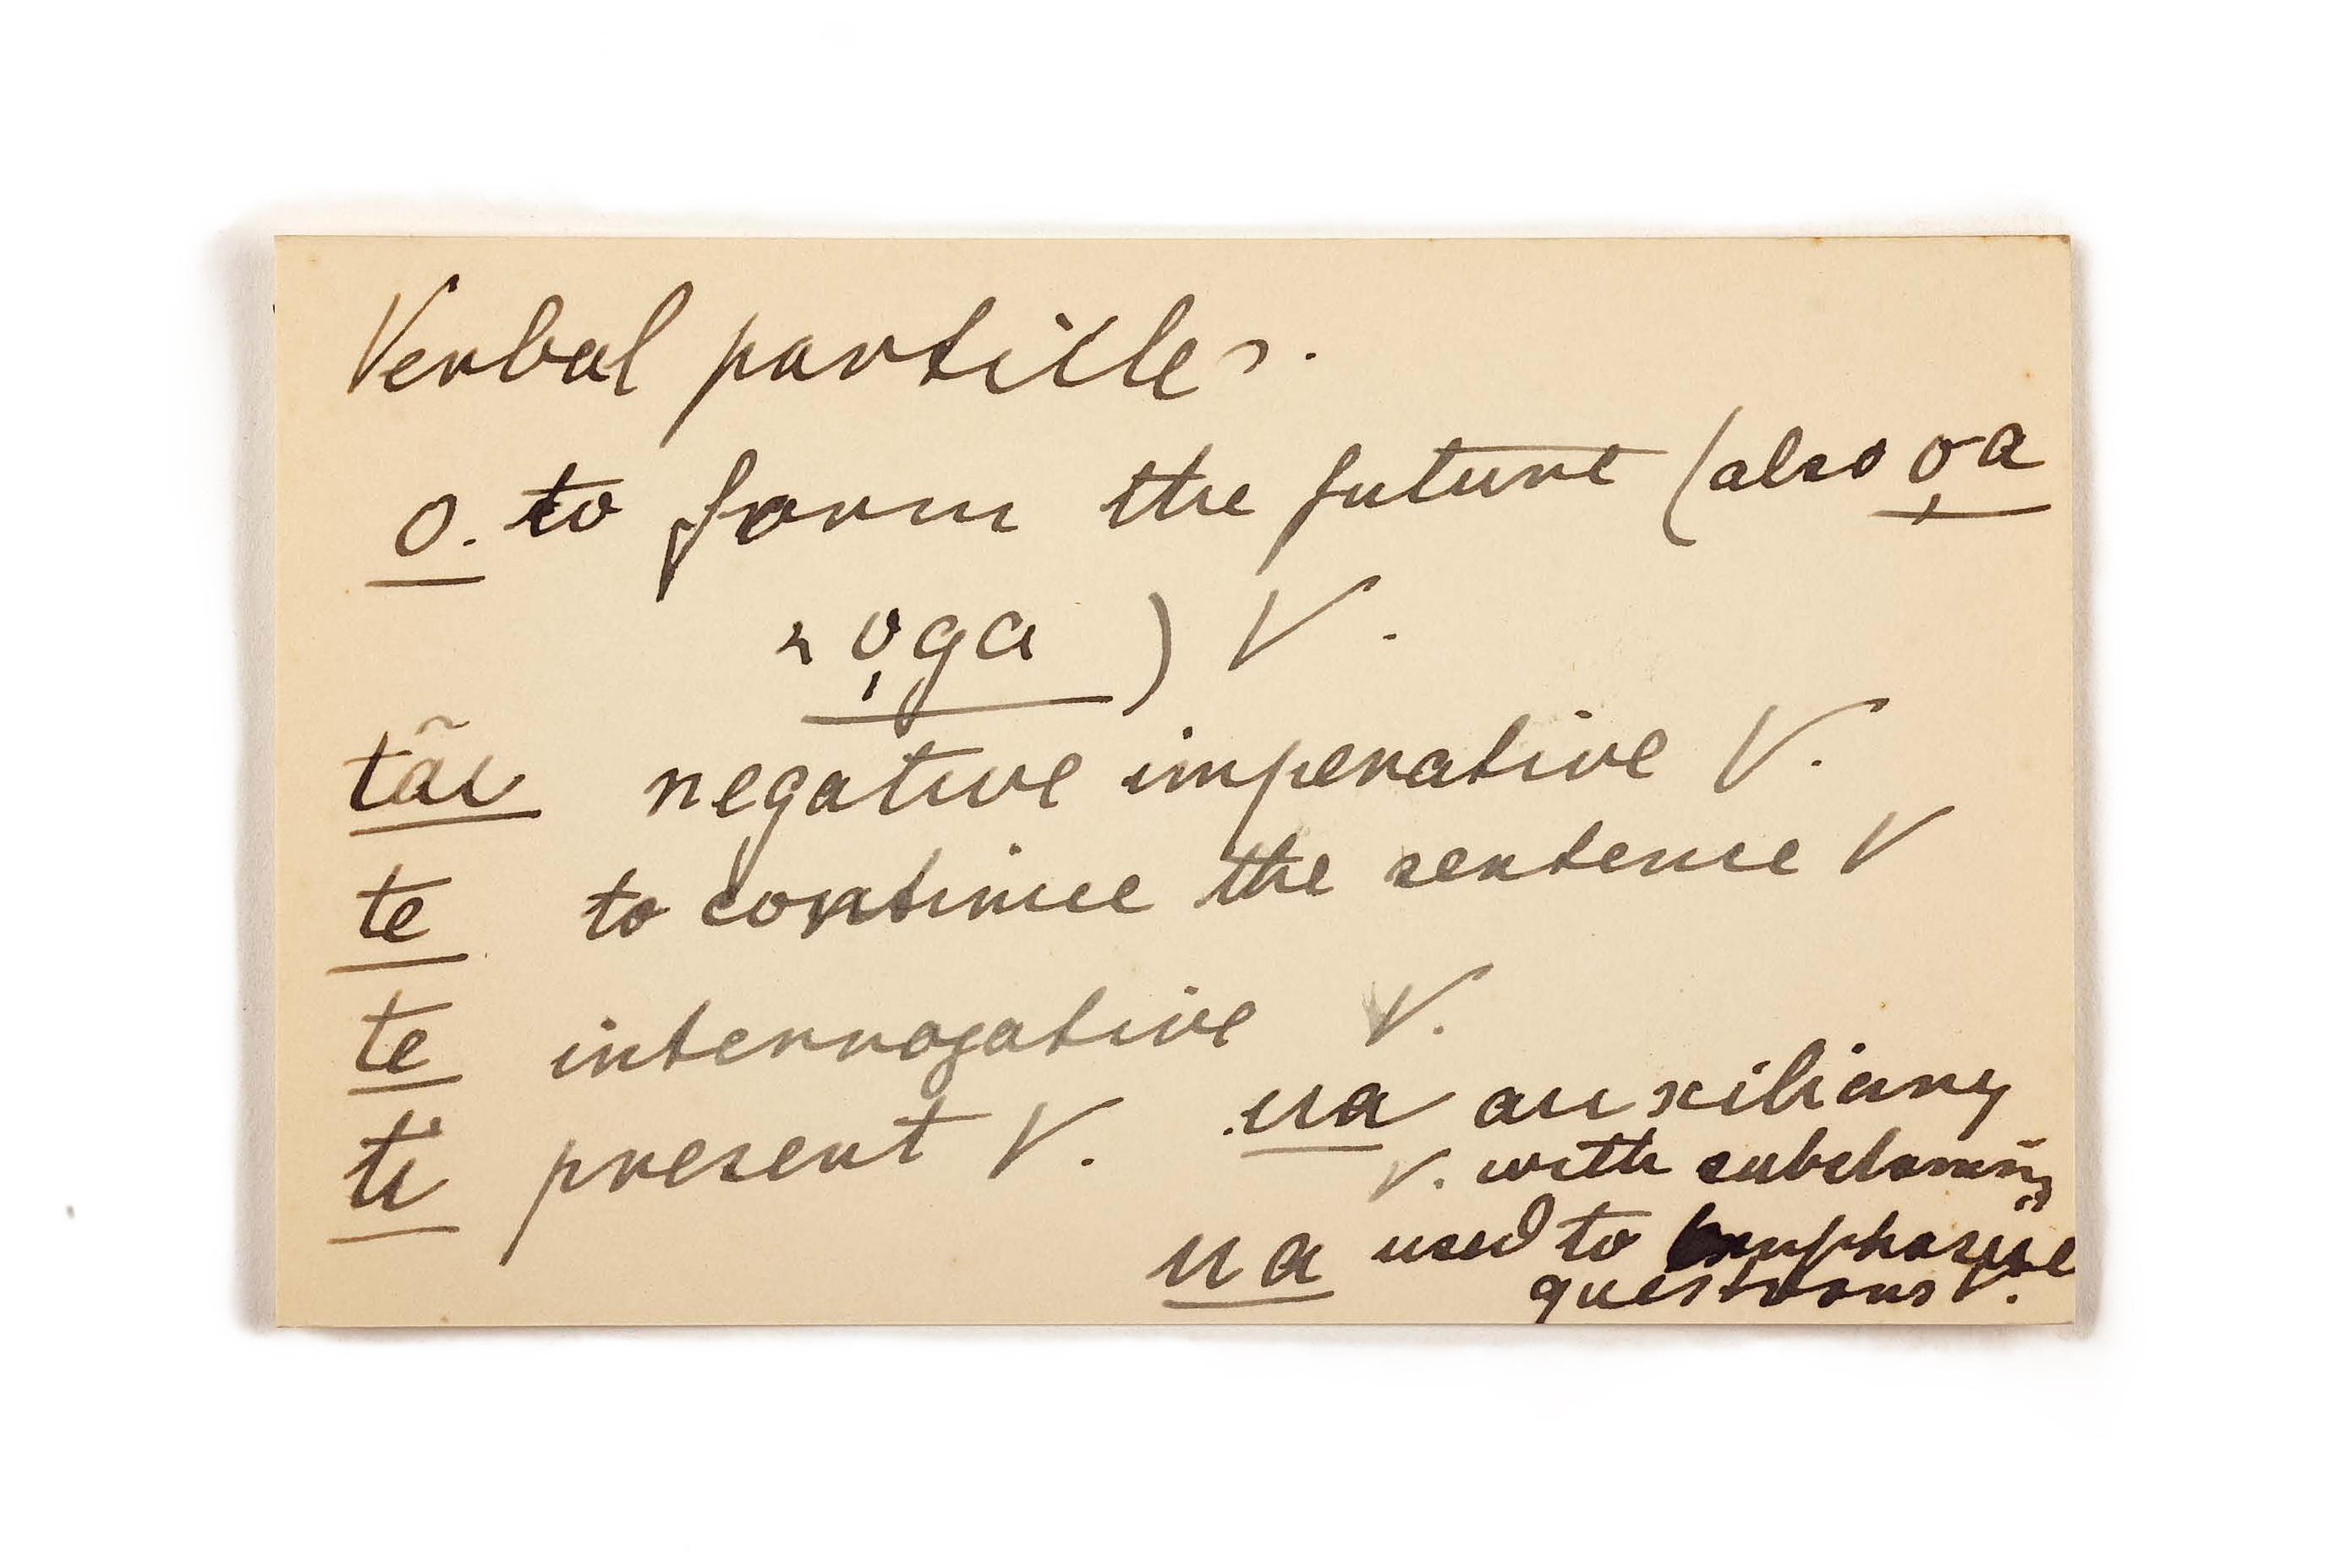 Verbal particles.
o. to form the future (also o̩a
r o̩ga) V.
tãi negative imperative V.
te to continue the sentence V
te interrogative V.
ti present V. ua auxiliary
V. with
ua used to emphasize
questions V.